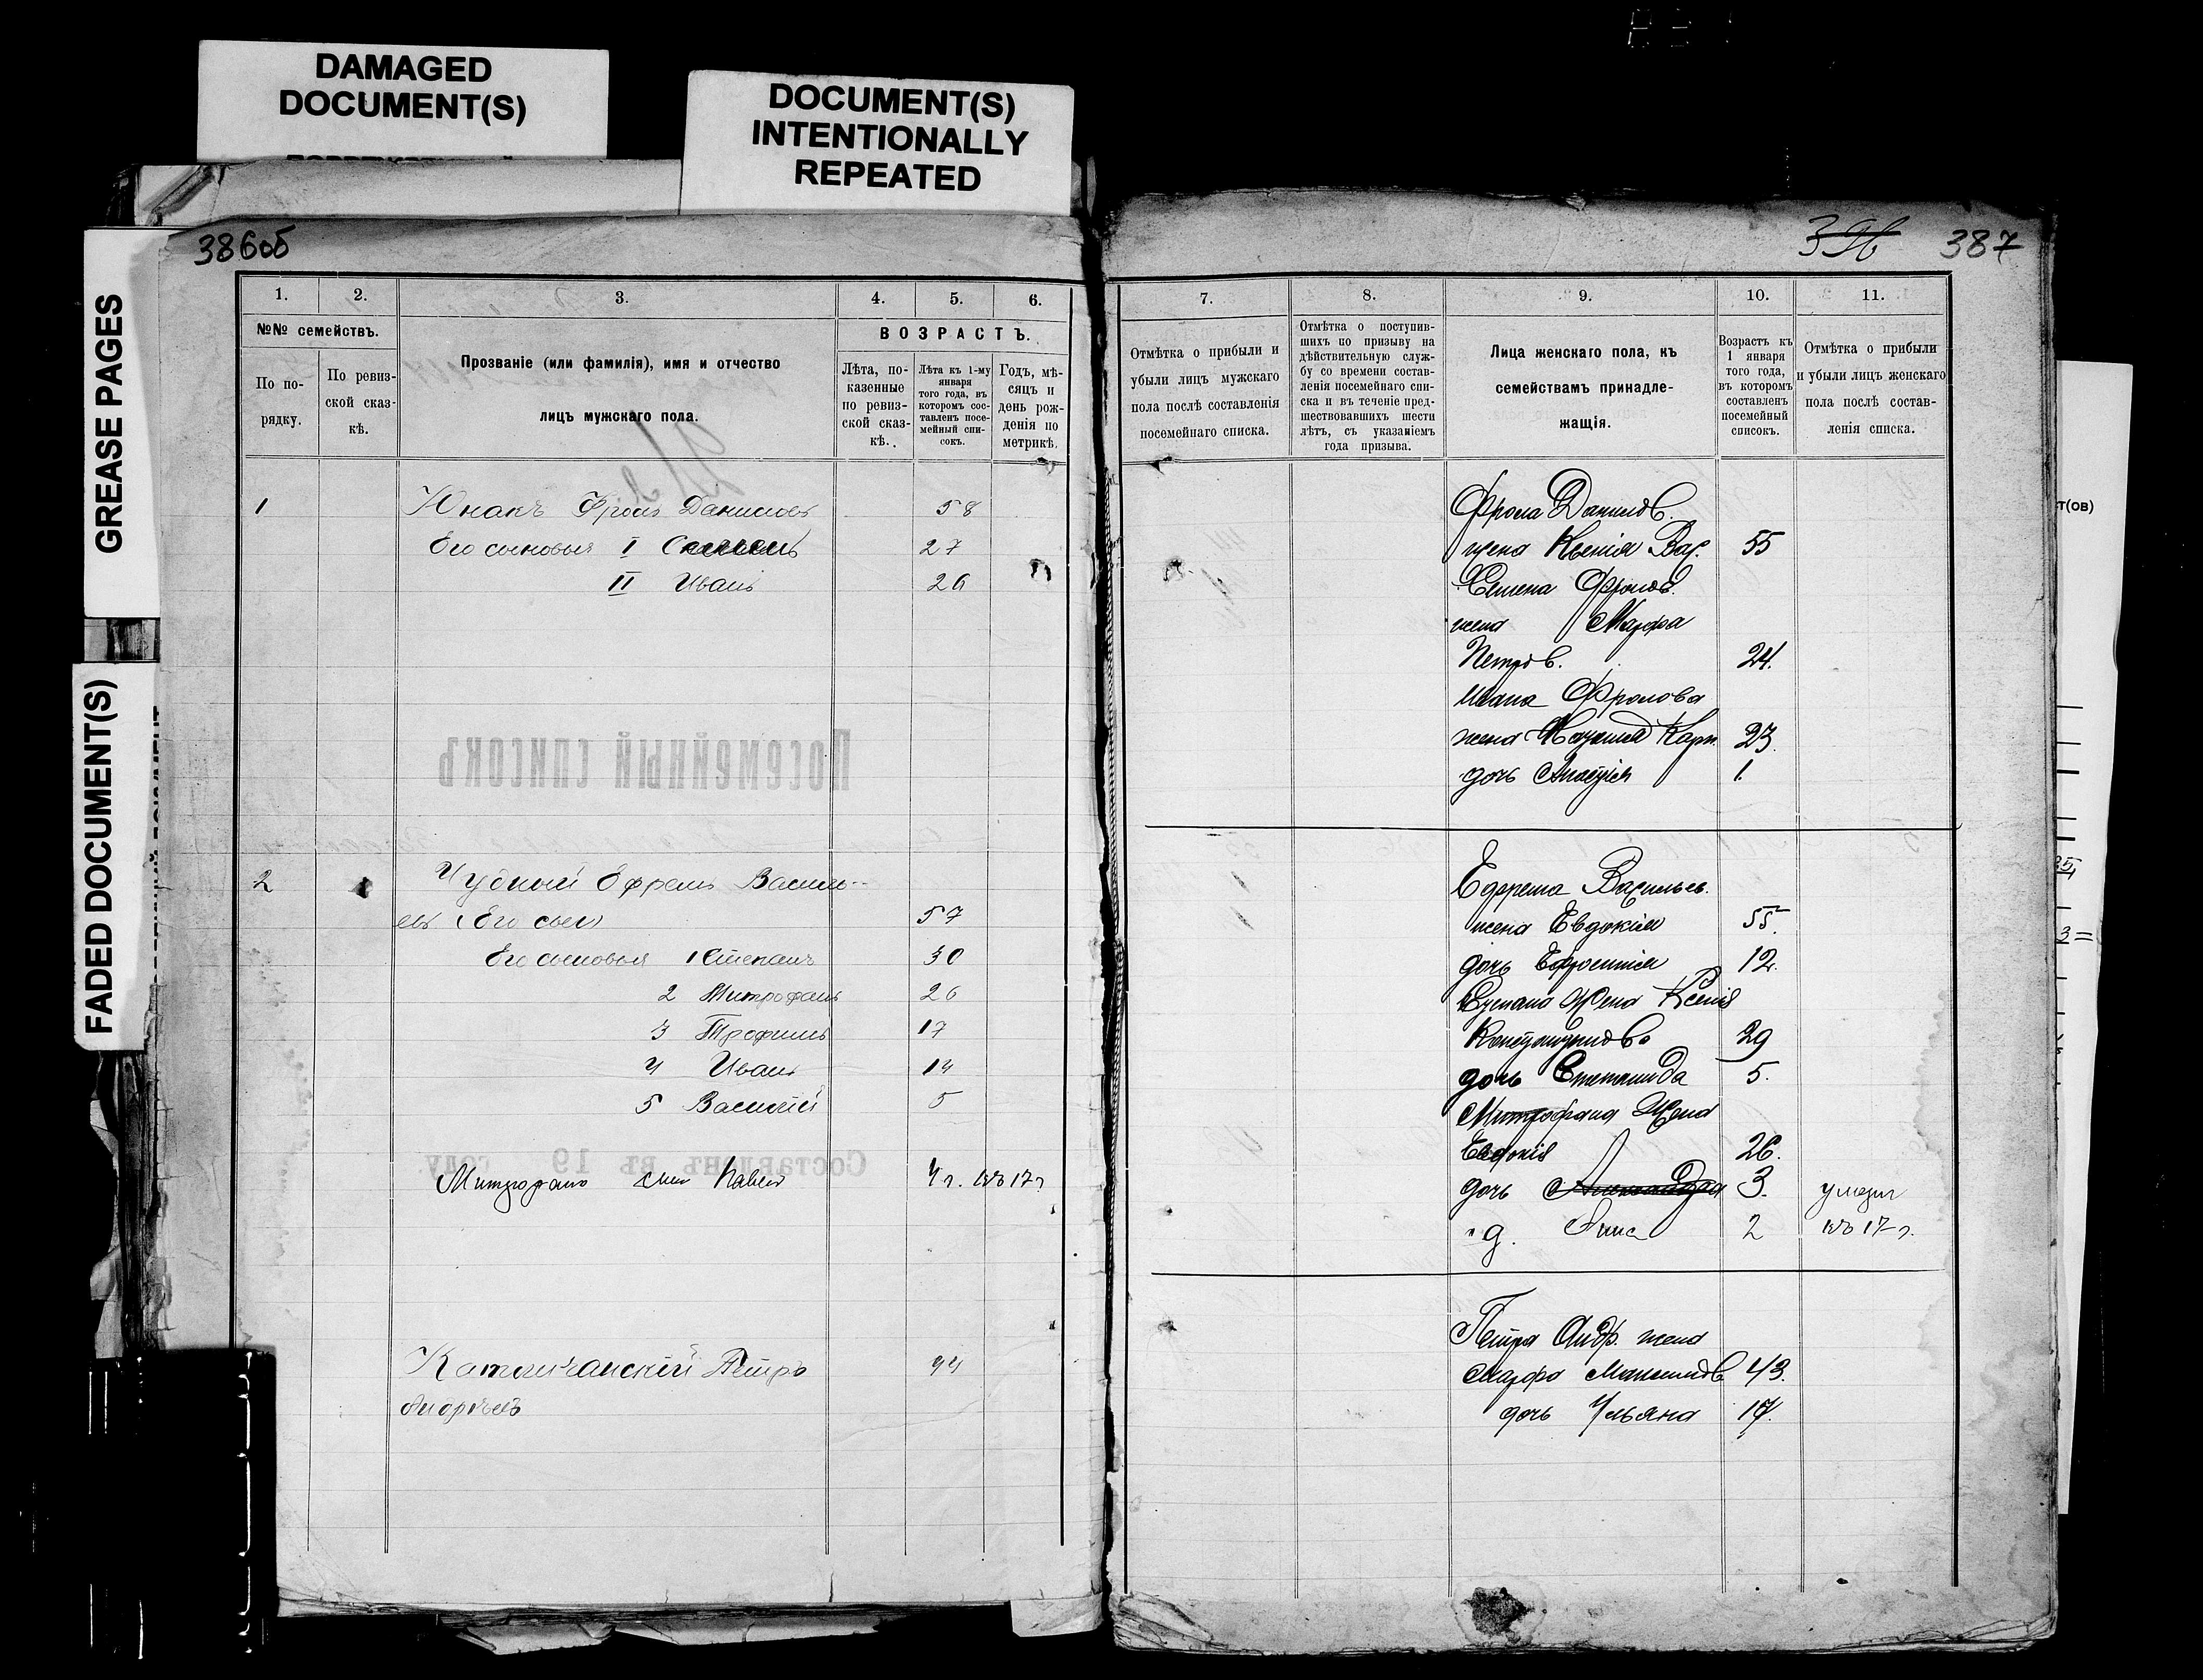 DAMAGED
DOCUMENT(S)
DOCUMENT(S)
INTENTIONALLY
REPEATED
GREASE PAGES
FADED DOCUMENT(S)
386об
1.
2.
3.
4.
5.
6.
№№ семействъ.
По по-
рядку.
По ревиз-
ской сказ-
кѣ.
Прозваніе (или фамилія), имя и отчество
лицъ мужскаго пола.
ВОЗРАСТЪ.
Лѣта, по-
казенные
по ревиз-
ской сказ-
кѣ.
Лѣта къ 1-му
января
того года, въ
которомъ сос-
тавленъ посе-
мейный спи-
сокъ.
Годъ, мѣ-
сяцъ и
день рож-
денія по
метрикѣ.
1 Юнакъ Фролъ Даниловъ 58
Его сыновья I Семенъ 27
II Иванъ 26
Посемейный списокъ
2 Чудный Ефремъ Василь-
евъ (Его сын) 57
Его сыновья 1 Степанъ 30
2 Митрофанъ 26
3 Трофимъ 17
4 Иванъ 14
5 Василій 5
Составленъ въ 19 году
Митрофана сын Павел 4 г. въ 17 г
Петръ 44
Андреевъ
396 387
7.
8.
9.
10.
11.
Отмѣтка о прибыли и
убыли лицъ мужскаго
пола послѣ составленія
посемейнаго списка.
Отмѣтка о поступив-
шихъ по призыву на
дѣйствительную служ-
бу со времени состав-
ленія посемейнаго спи-
ска и въ теченіе пред-
шествовавшихъ шести
лѣтъ, съ указаніемъ
года призыва.
Лица женскаго пола, къ
семействамъ принадле-
жащія.
Возрастъ къ
1 января
того года,
въ которомъ
составленъ
посемейный
списокъ.
Отмѣтка о прибыли
и убыли лицъ женскаго
пола послѣ состав-
ленія списка.
Фрола Данилов.
жена Ксенія Вас. 55
Семена Фролов.
жена Марфа
Петров. 24.
Ивана Фролова
жена Карп. 23.
дочь 1.
Ефрема Васильев.
жена Евдокія 55.
дочь Ефросинія 12.
Степана Жена Ксенія
29
дочь Степанида 5.
Митрофана Жена
Евдокія 26.
дочь Александра 3. умерл
д. Анна 2 въ 17 г.
Петра Андр. жена
Марфа Максимов. 43.
дочь Ульяна 17.
т(ов)